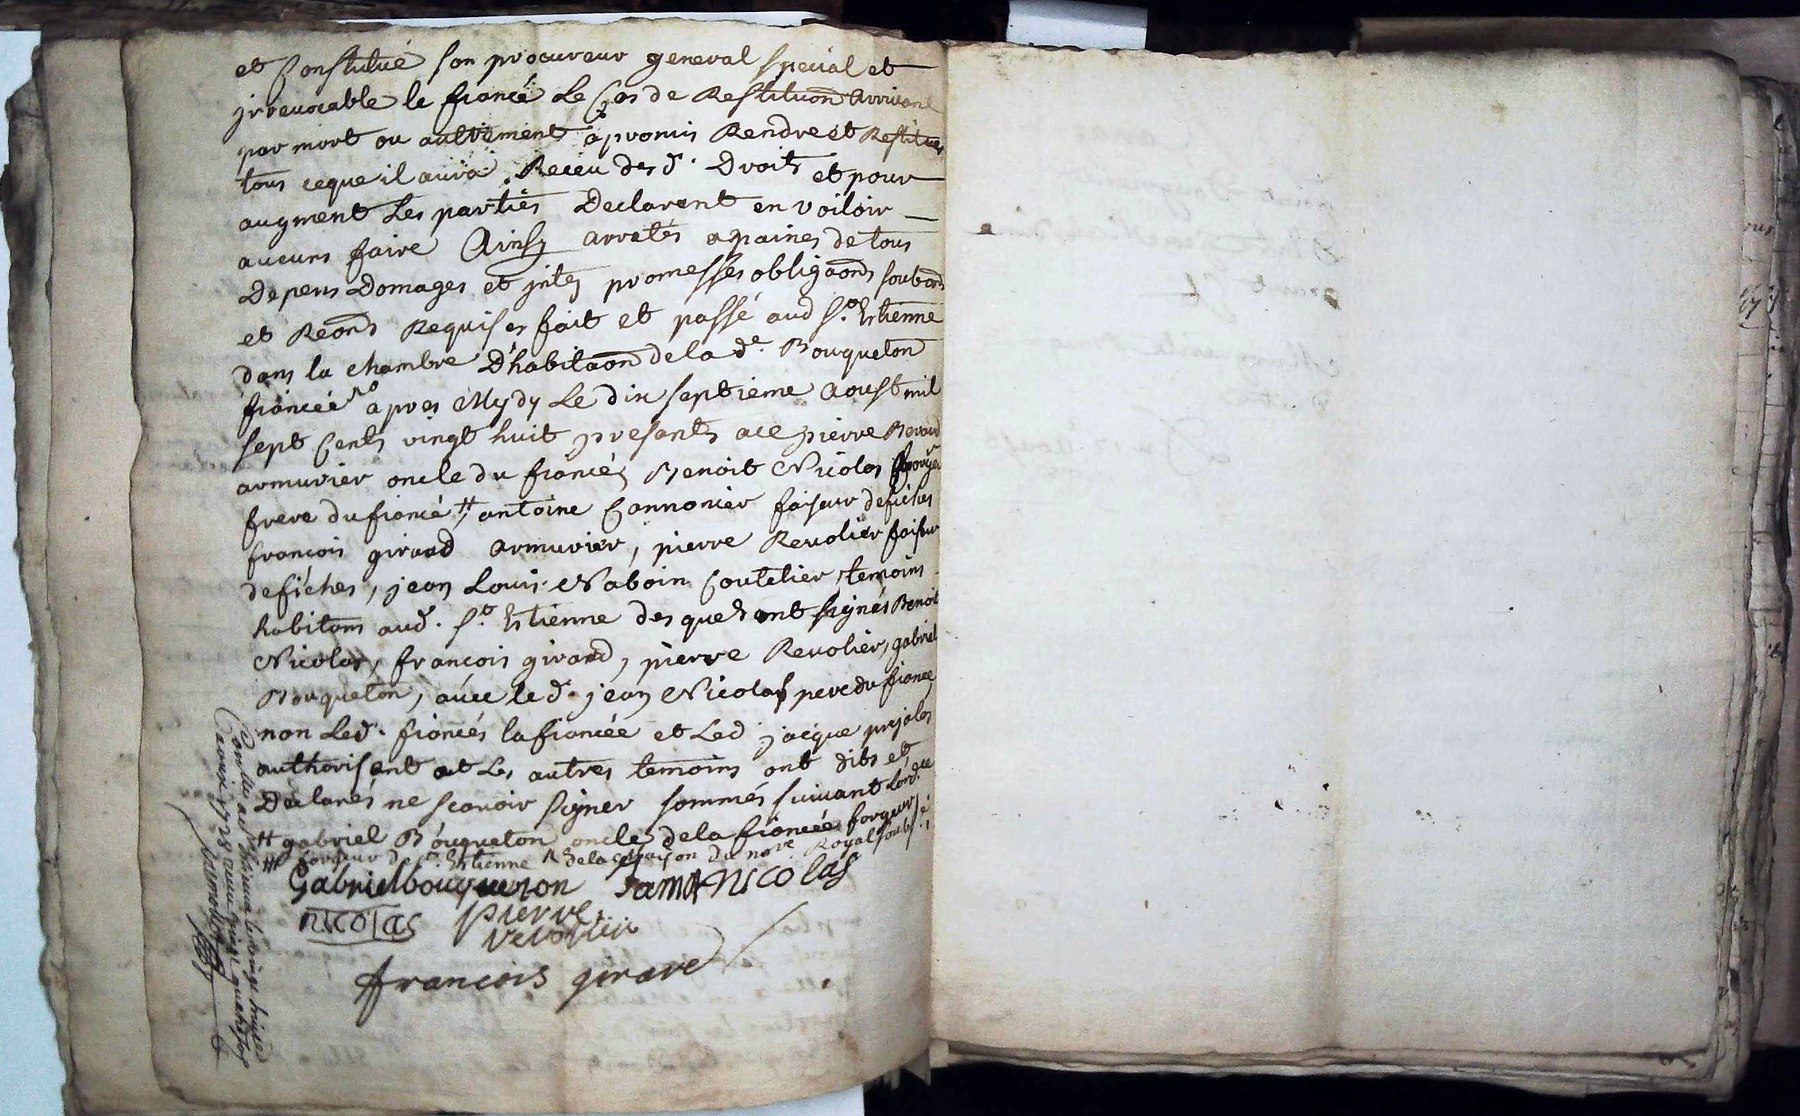 et Constitué son procureur general special et
jrrevocable le fiancé Le Cas de Restituõn Arrivant
par mort ou autrement a promis Rendre et Restituer
tous ceque il aura Receu des d. Droits et pour
augment Les parties Declarent en voiloir
aucuns faire Ainsy arretés a paines de tous
Depens Domages et jntes promesses obligãons soubmõns
et Reõns Requises fait et passé aud St. Estienne
dans la chambre D'habitãon de la de. Bouqueton
fiancée apres Mydy Le dix septieme Aoust mil
sept Cents vingt huit presents ace pierre
armurier oncle du fiancé, Benoit Nicolas forgeur
frere du fiancé # antoine Cannonier faiseur defiches
francois giraud armurier, pierre Revolier faiseur
defiches, jean Louis Naboin Coutelier, temoins
habitans aud. St. Estienne des quels ont signés Benoit
Nicolas, francois giraud, pierre Revolier, gabriel
Bouqueton, avec le d. jean Nicolas pere du fiancé
non Led. fiancés la fiancée et Led jacque prajalas
authorisant et Les autres temoins ont dits et
Declarés ne scavoir signer sommés suivant Lord.ce
# gabriel Bouqueton oncle de la fiancée forgeur
forgeur d St. Estienne de la du nore Royal soubsé.
Gabriel bouqueton Jamt Nicolas
nicolas pierre
revollier
francois girard